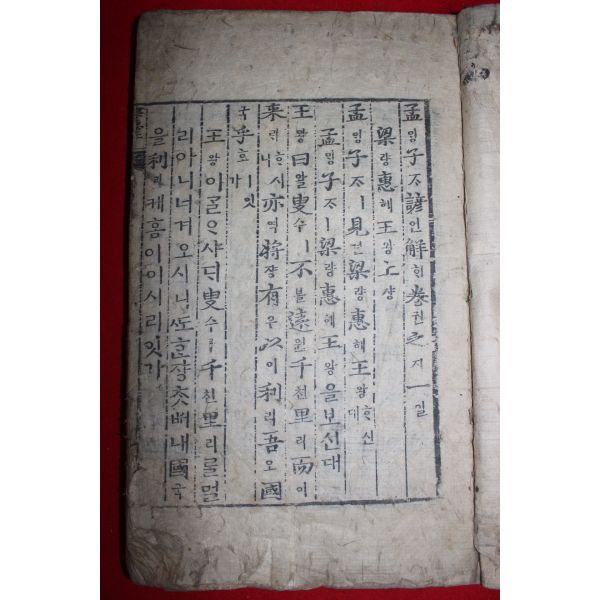 孟밍子ᄌᆞ諺언解ᄒᆡ卷권之지一일
梁량惠혜王왕上샹
孟밍子ᄌᆞㅣ見견梁량惠혜王왕ᄒᆞ신대
孟밍子ᄌᆞㅣ梁량惠혜王왕을보신대
王왕曰왈叟수ㅣ不블遠원千쳔里리而이
來ᄅᆡᄒᆞ시니亦역將쟝有유以이利리吾오國
국乎호ㅣ잇가
王왕이ᄀᆞᆯᄋᆞ샤ᄃᆡ叟수ㅣ千쳔里리ᄅᆞᆯ멀
리아니너겨오시니ᄯᅩᄒᆞᆫ장ᄎᆞᆺᄡᅥ내國국
을利리케홈이이시리잇가